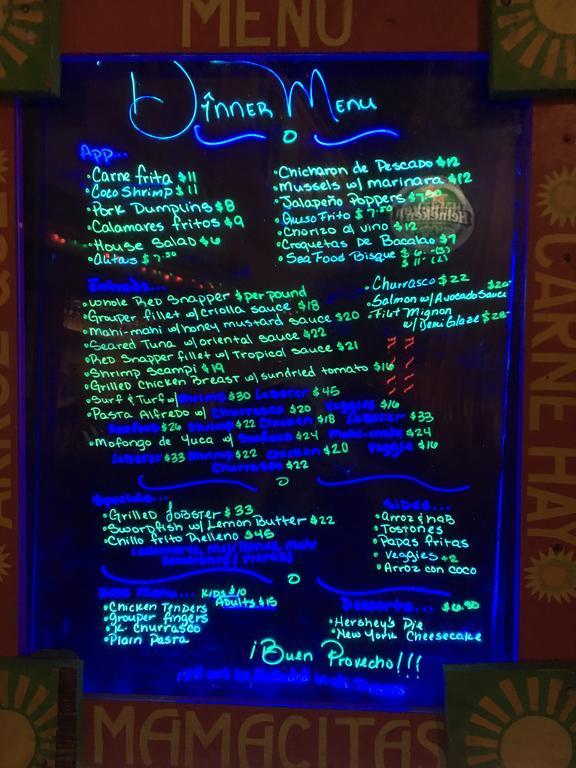 MENU
Dinner Menu
App...
• Carne frita $11
• Coco Shrimp $11
• Pork Dumplins $8
• Calamares fritos $9
• House Salad $6
• Alitas $7.50
• Chicharon de Pescado $12
• Mussels w/ marinara $12
• Jalapeño Poppers $7.50
• Queso Frito $7.50
• Chorizo al vino $12
• Croquetas De Bacalao $7
• Sea Food Bisque $6
Heineken
Entrees...
• Whole Red Snapper $ per pound
• Grouper fillet w/ criolla sauce $18
• Mahi-mahi w/ honey mustard sauce $20
• Seared Tuna w/ oriental sauce $22
• Red Snapper fillet w/ Tropical sauce $21
• Shrimp Scampi $19
• Grilled Chicken Breast w/ sundried tomato $16
• Surf & Turf w/ Shrimp $30 Lobster $45
• Pasta Alfredo w/ Churrasco $20 Veggies $16
Seafood $26 Shrimp $22 Chicken $18 Lobster $33
• Mofongo de Yuca w/ Seafood $24 Mahi-mahi $24
Lobster $33 Shrimp $22 Chicken $20 Veggie $16
Churrasco $22
• Churrasco $22
• Salmon w/ Avocado Sauce $20
• Filet Mignon
w/ Demi Glaze $28
Specials...
• Grilled Lobster $33
• Swordfish w/ Lemon Butter $22
• Chillo frito Relleno $45
Sides...
• Arroz & hab
• Tostones
• Papas fritas
• Veggies +2
• Arroz con coco
Kids Menu... Kids $10
Adults $15
• Chicken Tenders
• Grouper fingers
• K. Churrasco
• Plain Pasta
Desserts... $6.50
• Hershey's Pie
• New York Cheesecake
¡Buen Provecho!!!
MAMACITAS
CARNE HAY